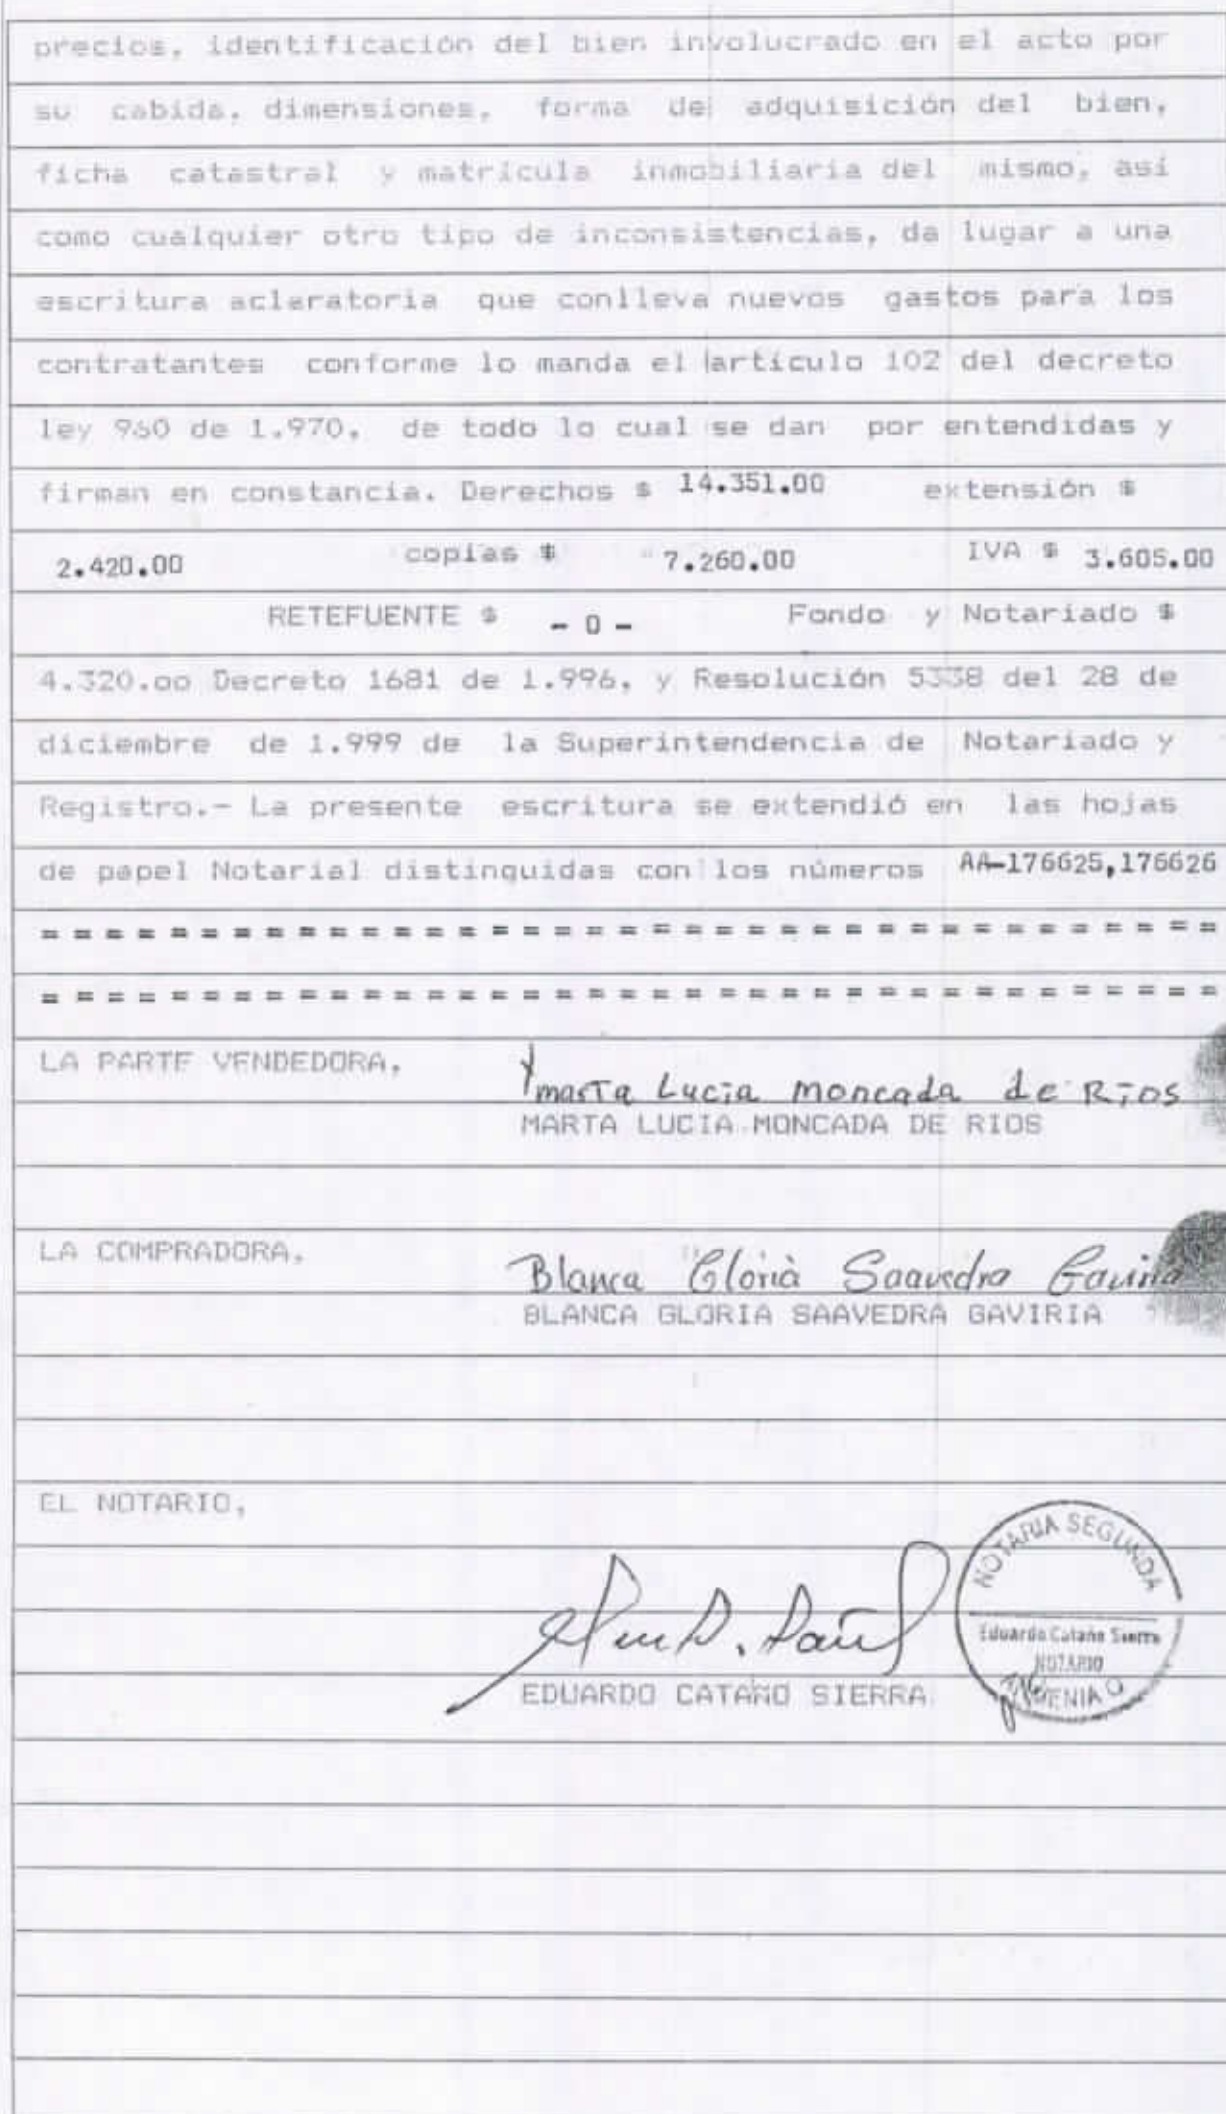 precios, identificación del bien involucrado en el acto por
su cabida, dimensiones, forma de adquisición del bien,
ficha catastral y matrícula inmobiliaria del mismo, así
como cualquier otro tipo de inconsistencias, da lugar a una
escritura aclaratoria que conlleva nuevos gastos para los
contratantes conforme lo manda el artículo 102 del decreto
ley 960 de 1.970, de todo lo cual se dan por entendidas y
firman en constancia. Derechos $ 14.351.00 extensión $
2.420.00 copias $ 7.260.00 IVA $ 3.605.00
RETEFUENTE $ - 0 - Fondo y Notariado $
4.320.oo Decreto 1681 de 1.996, y Resolución 5338 del 28 de
diciembre de 1.999 de la Superintendencia de Notariado y
Registro.- La presente escritura se extendió en las hojas
de papel Notarial distinguidas con los números AA-176625,176626
= = = = = = = = = = = = = = = = = = = = = = = = = = = = = = = = = = = = =
= = = = = = = = = = = = = = = = = = = = = = = = = = = = = = = = = = = = =
LA PARTE VENDEDORA,
Marta Lucia Moncada de Rios
MARTA LUCIA MONCADA DE RIOS
LA COMPRADORA,
Blanca Gloria Saavedra Gaviria
BLANCA GLORIA SAAVEDRA GAVIRIA
EL NOTARIO,
NOTARIA SEGUNDA
Eduardo Cataño Sierra
NOTARIO
ARMENIA Q
EDUARDO CATAÑO SIERRA